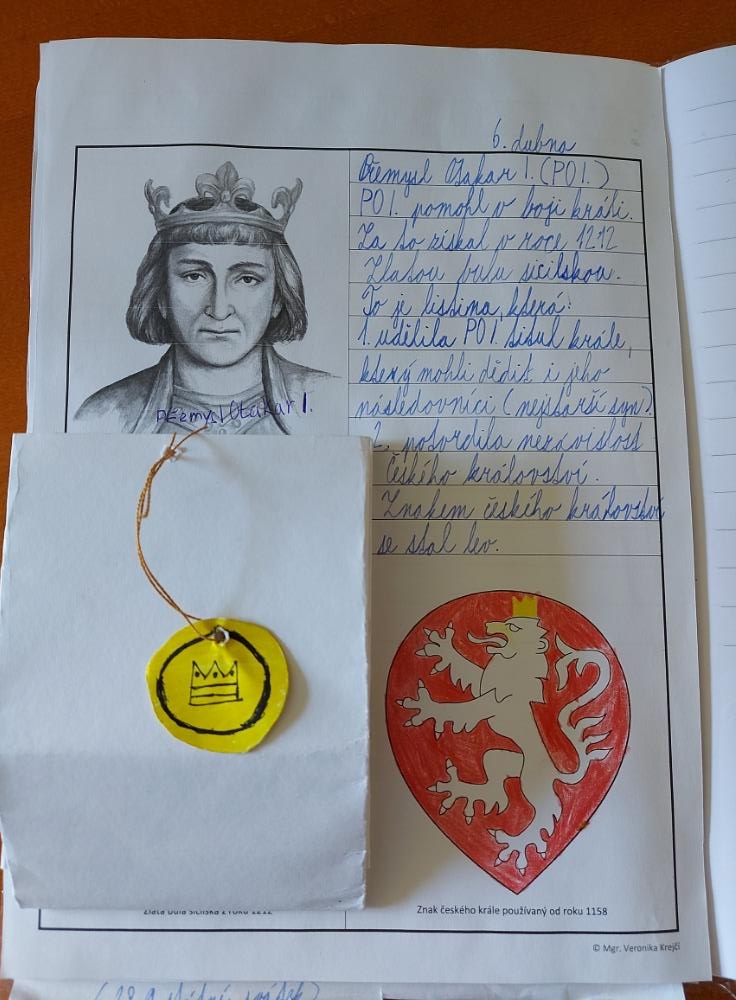 6. dubna
Přemysl Otakar I. (PO I.)
PO I. pomohl v boji králi.
Za to získal v roce 1212
Zlatou bulu sicilskou.
To je listina, která:
1. udělila PO I. titul krále,
který mohli dědit i jeho
následovníci (nejstarší syn).
2. potvrdila nezávislost
Českého království.
Znakem českého království
se stal lev.
Přemysl Otakar I.
Zlatá bula sicilská z roku 1212
Znak českého krále používaný od roku 1158
© Mgr. Veronika Krejčí
(28. 9. státní svátek)